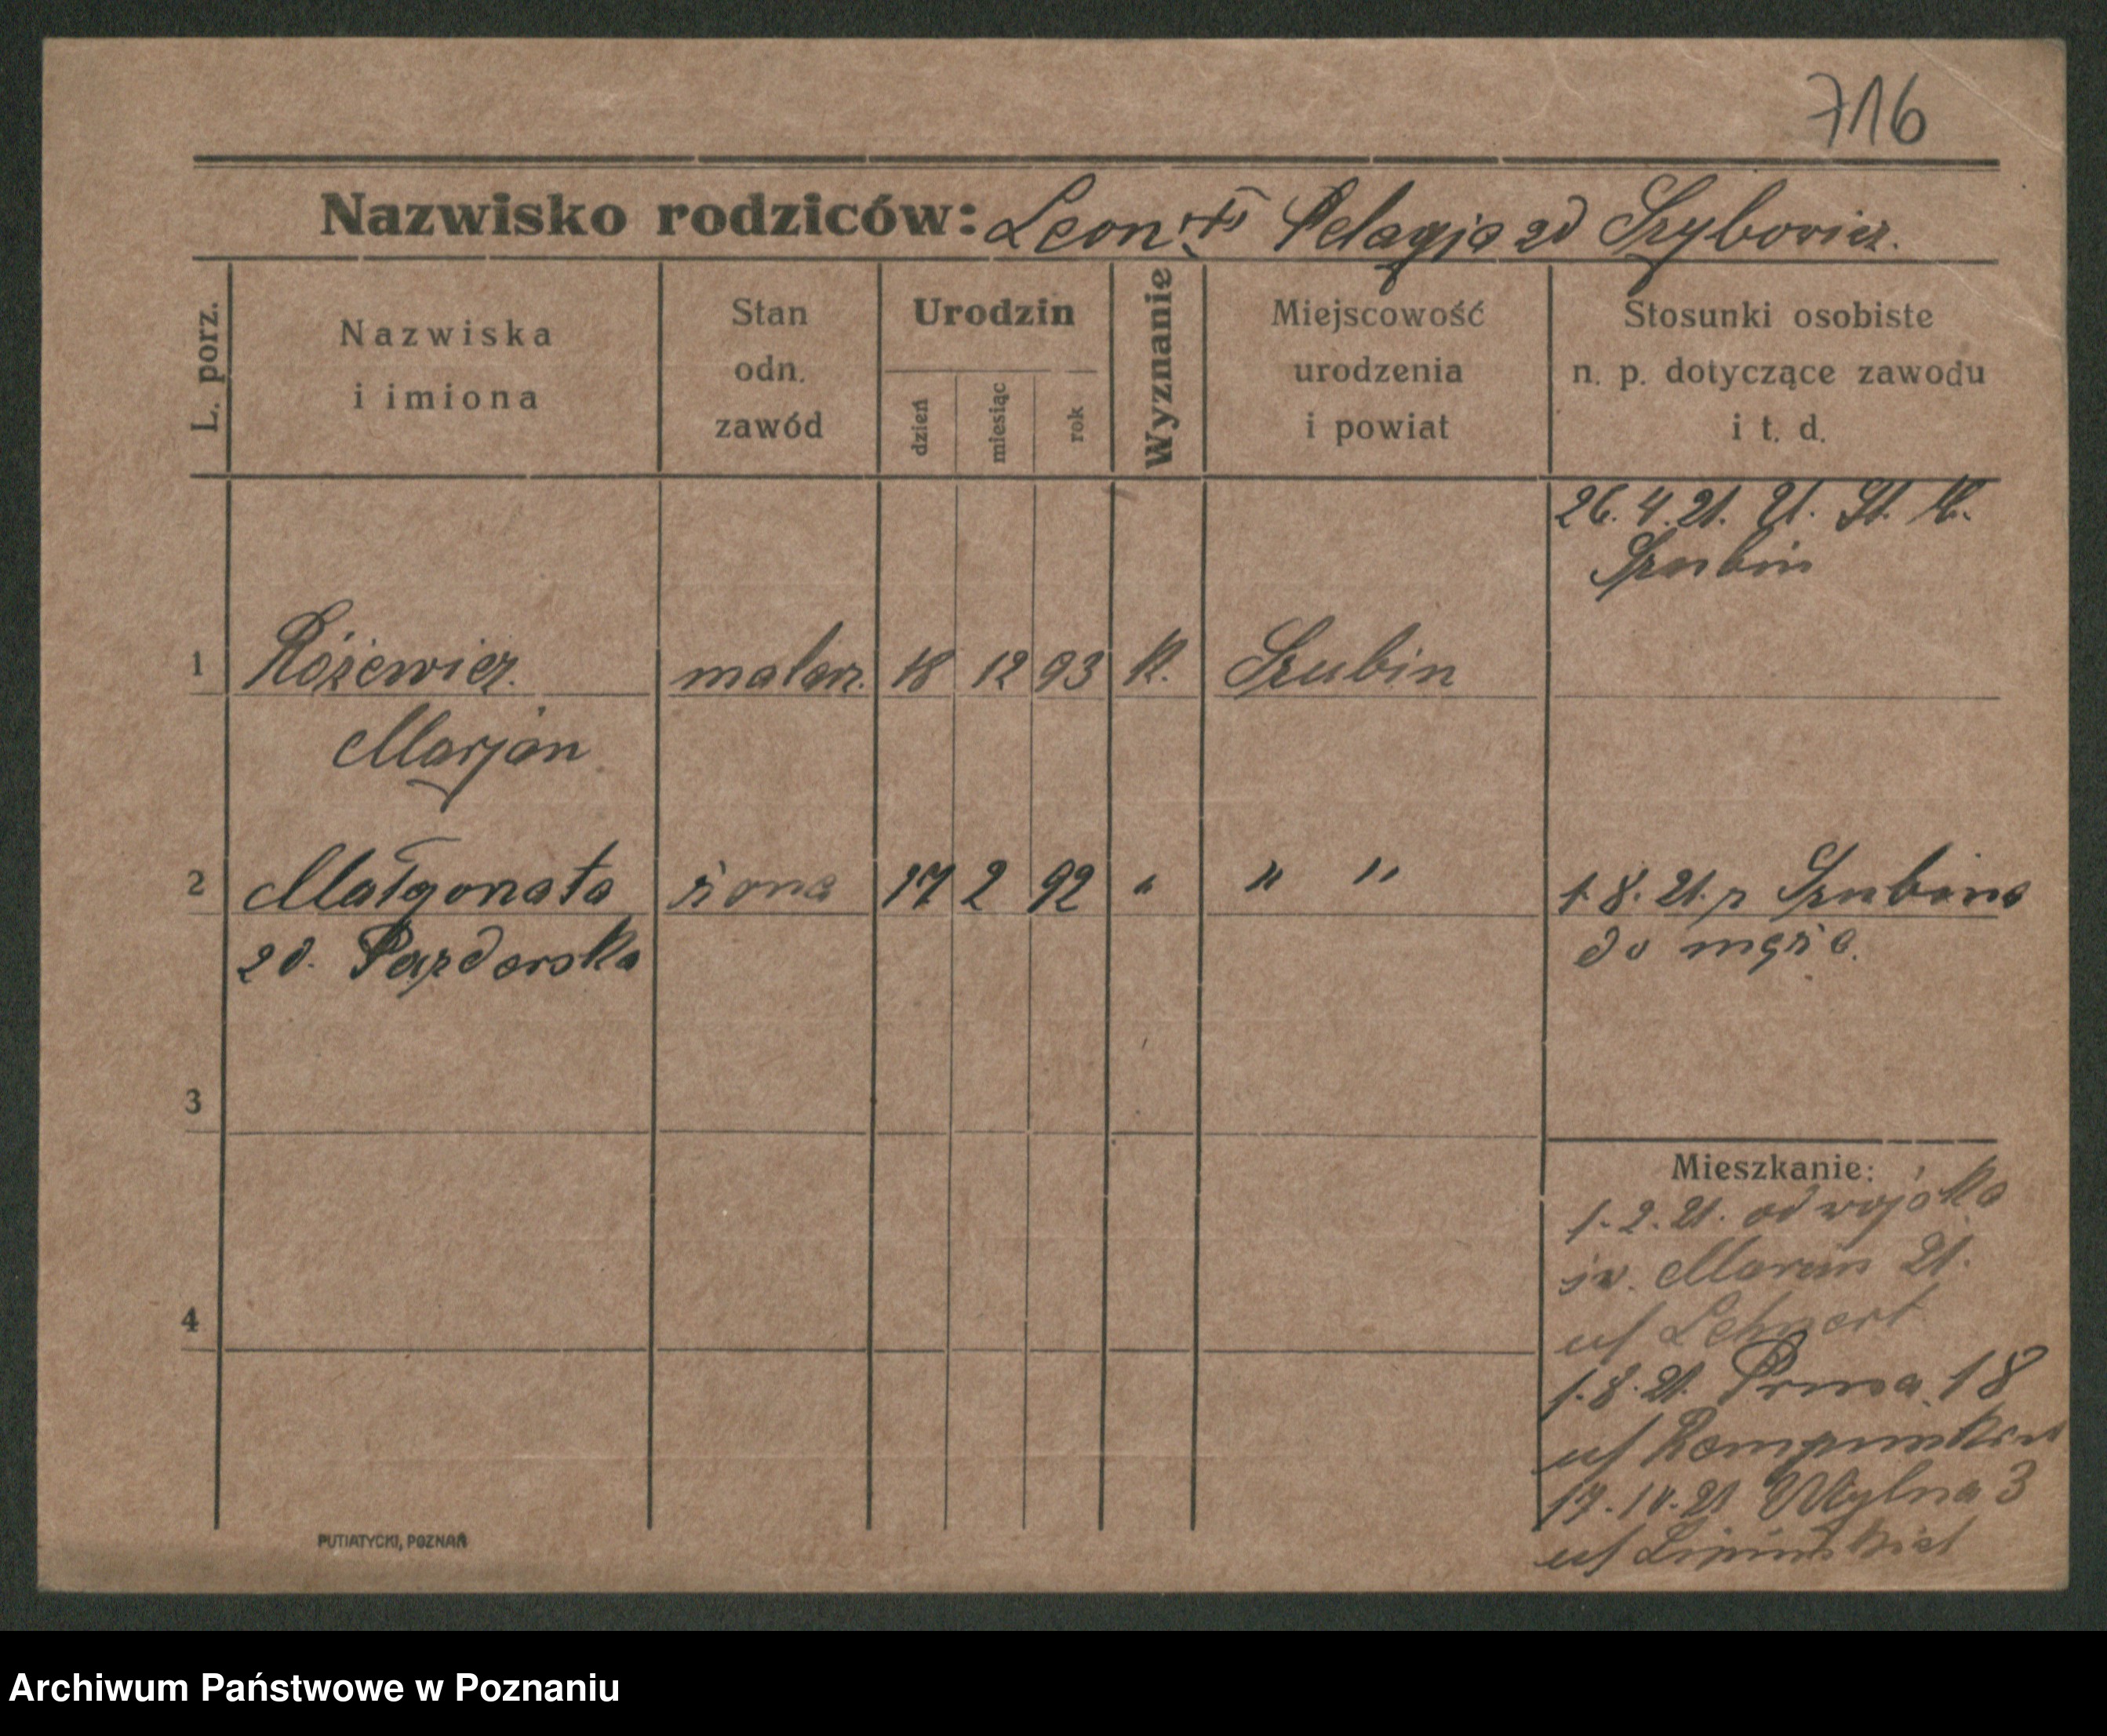 716
Nazwisko rodziców: Leon Pelagja zd Szybowicz.
L. porz.
Nazwiska
i imiona
Stan
odn.
zawód
Urodzin
dzień
miesiąc
rok
Wyznanie
Miejscowość
urodzenia
i powiat
Stosunki osobiste
n. p. dotyczące zawodu
i t. d.
26. 4. 21.
Szubin
1 Różewicz. malarz. 18 12 93 k. Szubin
Marjan
2 Małgorzata żona 17 2 92 " " " 1. 8. 21. z Szubina
zd. Pazderska do męża.
3
4
Mieszkanie:
1. 2. 21. od wojska
św. Marcin 21.
u/ Lehnert
1. 8. 21. 18
u/
17. 10. 21 Młylna 3
u/ Lipiński
PUTIATYCKI, POZNAŃ
Archiwum Państwowe w Poznaniu